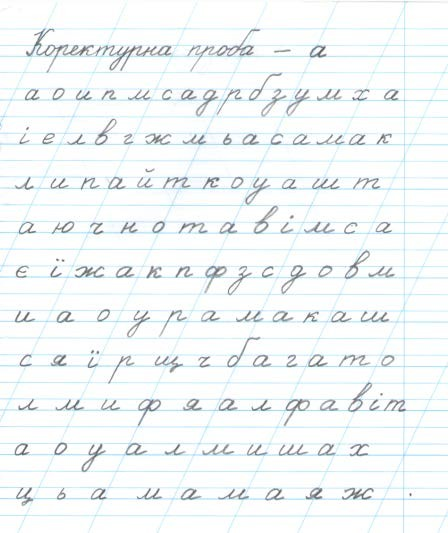 Коректурна проба – а
а о и п м с а д р б з у м х а
і е л в г ж м ь а с а м а к
л и п а й т к о у а ш т
а ю ч н о т а в і м с а
є ї ж а к п ф з с д о в м
и а о у р а м а к а ш
с я ї р щ ч б а г а т о
л м и ф я а л ф а в і т
а о у а л м и ш а х
ц ь а м а м а я ж .